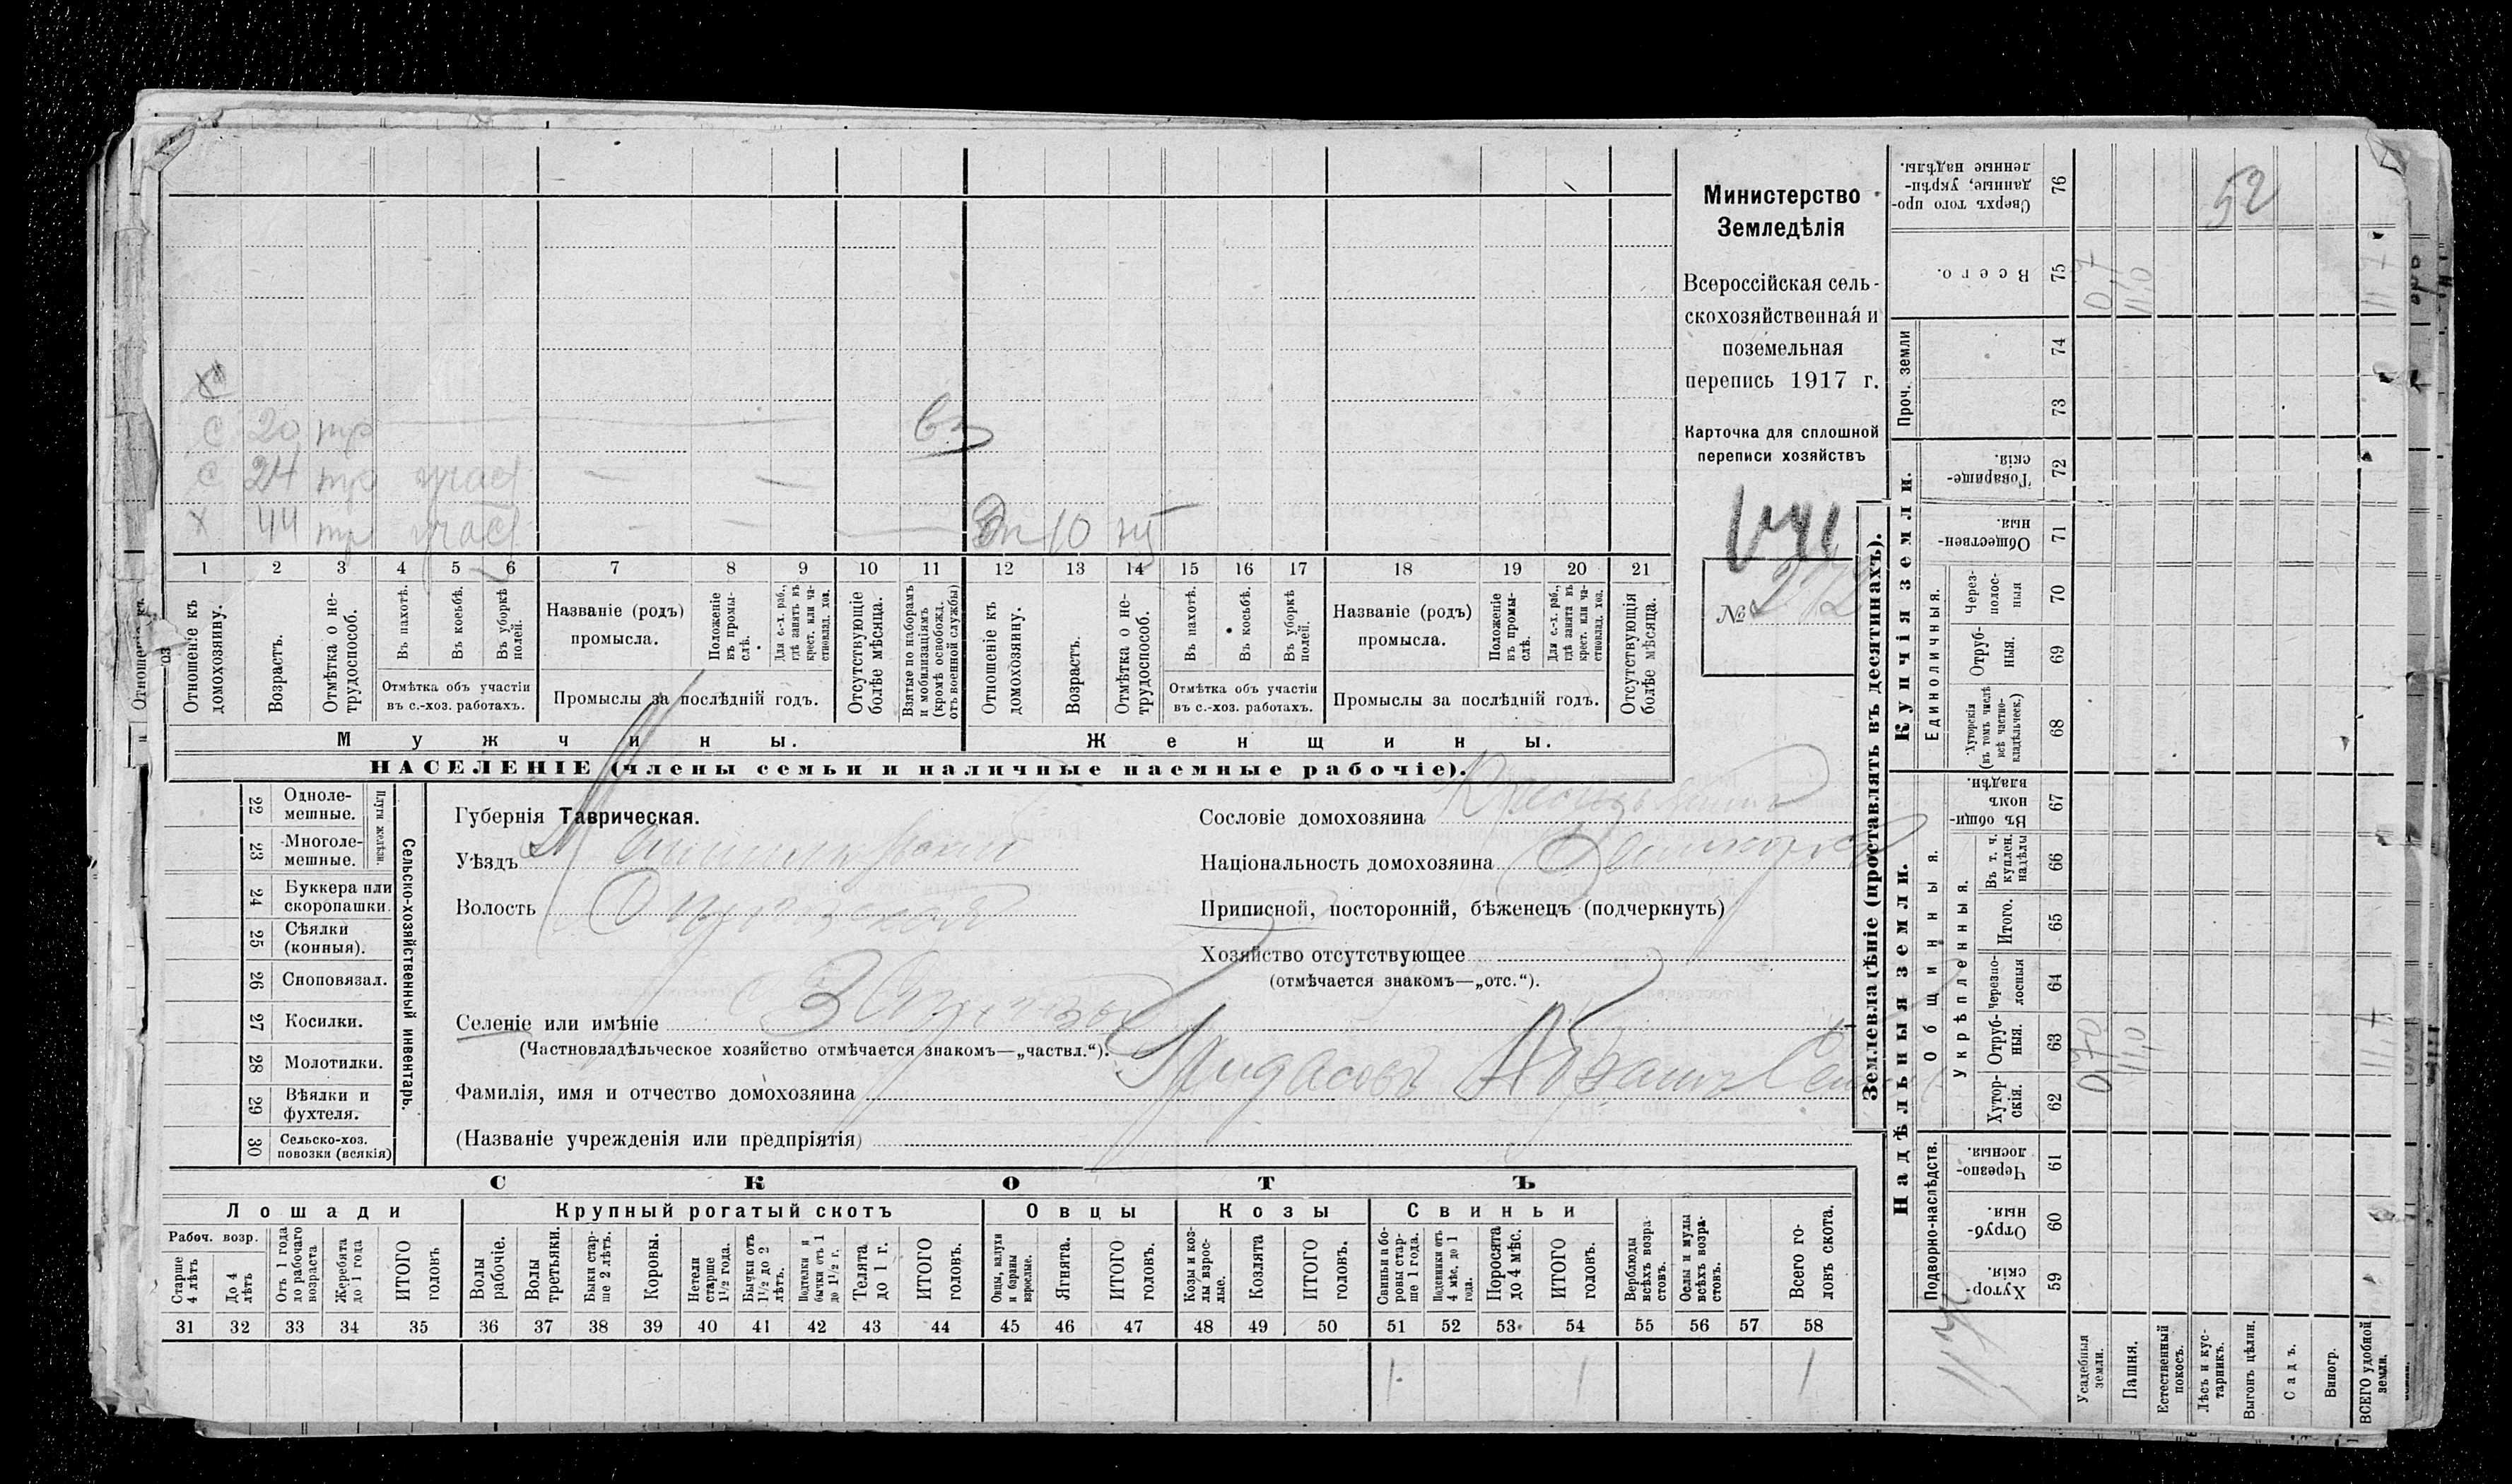 Министерство
Земледѣлія
Всероссійская сель-
скохозяйственная и
поземельная
перепись 1917 г.
Карточка для сплошной
переписи хозяйствъ
VЧІ
№ 272
С 20 тр вз
С 24 тр учас — —
Х 44 тр учас — — — Дч 10 н/т
1 2 3 4 5 6 7 8 9 10 11 12 13 14 15 16 17 18 19 20 21
Отношеніе къ домохозяину.
Возрастъ.
Отмѣтка о не-трудоспособ.
Въ пахотѣ.
Въ косьбѣ.
Въ уборкѣ полей.
Отмѣтка объ участіи
въ с.-хоз. работахъ.
Названіе (родъ)
промысла.
Положеніе въ промы-слѣ.
Для с.-х. раб., гдѣ занятъ въ крест. или ча-стновлад. хоз.
Промыслы за послѣдній годъ.
Отсутствующіе болѣе мѣсяца.
Взятые по наборамъ и мобилизаціямъ (кромѣ освобожд. отъ военной службы)
Отношеніе къ домохозяину.
Возрастъ.
Отмѣтка о не-трудоспособ.
Въ пахотѣ.
Въ косьбѣ.
Въ уборкѣ полей.
Отмѣтка объ участіи
въ с.-хоз. работахъ.
Названіе (родъ)
промысла.
Положеніе въ промы-слѣ.
Для с.-х. раб., гдѣ занята въ крест. или ча-стновлад. хоз.
Промыслы за послѣдній годъ.
Отсутствующія болѣе мѣсяца.
Мужчины.
Женщины.
НАСЕЛЕНІЕ (члены семьи и наличные наемные рабочіе).
Сельско-хозяйственный инвентарь.
Плуги желѣзн.
22 Одноле-мешные.
23 Многоле-мешные.
24 Буккера или скоропашки.
25 Сѣялки (конныя).
26 Сноповязал.
27 Косилки.
28 Молотилки.
29 Вѣялки и фухтеля.
30 Сельско-хоз. повозки (всякія)
Губернія Таврическая.
Уѣздъ
Волость
Селеніе или имѣніе
(Частновладѣльческое хозяйство отмѣчается знакомъ—„частвл.“).
Фамилія, имя и отчество домохозяина
(Названіе учрежденія или предпріятія)
Сословіе домохозяина
Національность домохозяина
Приписной, посторонній, бѣженецъ (подчеркнуть)
Хозяйство отсутствующее
(отмѣчается знакомъ—„отс.“).
СКОТЪ
Лошади
Рабоч. возр.
Старше 4 лѣтъ
До 4 лѣтъ
Отъ 1 года до рабочаго возраста
Жеребята до 1 года
ИТОГО головъ
Крупный рогатый скотъ
Волы рабочіе.
Волы третьяки.
Быки стар-ше 2 лѣтъ.
Коровы.
Нетели старше 1½ года.
Бычки отъ 1½ до 2 лѣтъ.
Подтелки и бычки отъ 1 до 1½ г.
Телята до 1 г.
ИТОГО головъ.
Овцы
Овцы, валухи и бараны взрослые.
Ягнята.
ИТОГО головъ.
Козы
Козы и коз-лы взрос-лые.
Козлята
ИТОГО головъ.
Свиньи
Свиньи и бо-ровы стар-ше 1 года.
Подсвинки отъ 4 мѣс. до 1 года.
Поросята до 4 мѣс.
ИТОГО головъ.
Верблюды всѣхъ возра-стовъ.
Ослы и мулы всѣхъ возра-стовъ.
Всего го-ловъ скота.
31 32 33 34 35 36 37 38 39 40 41 42 43 44 45 46 47 48 49 50 51 52 53 54 55 56 57 58
1 1 1
Землевладѣніе (проставлять въ десятинахъ).
Купчія земли.
Надѣльныя земли.
52
76 Сверхъ того про-данные, укрѣп-ленные надѣлы.
75 Всего.
0,7
11,0
11,7
Проч. земли
74
73
72 Товарище-скія.
71 Обществен-ныя.
Единоличныя.
70 Через-полос-ныя
69 Отруб-ныя.
68 Хуторскія (въ томъ числѣ всѣ частно-владѣльческ.)
Общинныя.
67 Въ общин-номъ владѣн.
Укрѣпленныя.
66 Въ т. ч. куплен. надѣлы
65 Итого.
64 Черезпо-лосныя
63 Отруб-ныя.
0,70
11,0
11,7
62 Хутор-скія.
Подворно-наслѣдств.
61 Черезпо-лосныя.
60 Отруб-ныя.
59 Хутор-скія.
Усадебныя земли.
Пашня.
Естественный покосъ.
Лѣсъ и кус-тарникъ.
Выгонъ цѣлин.
Садъ.
Виногр.
ВСЕГО удобной земли.